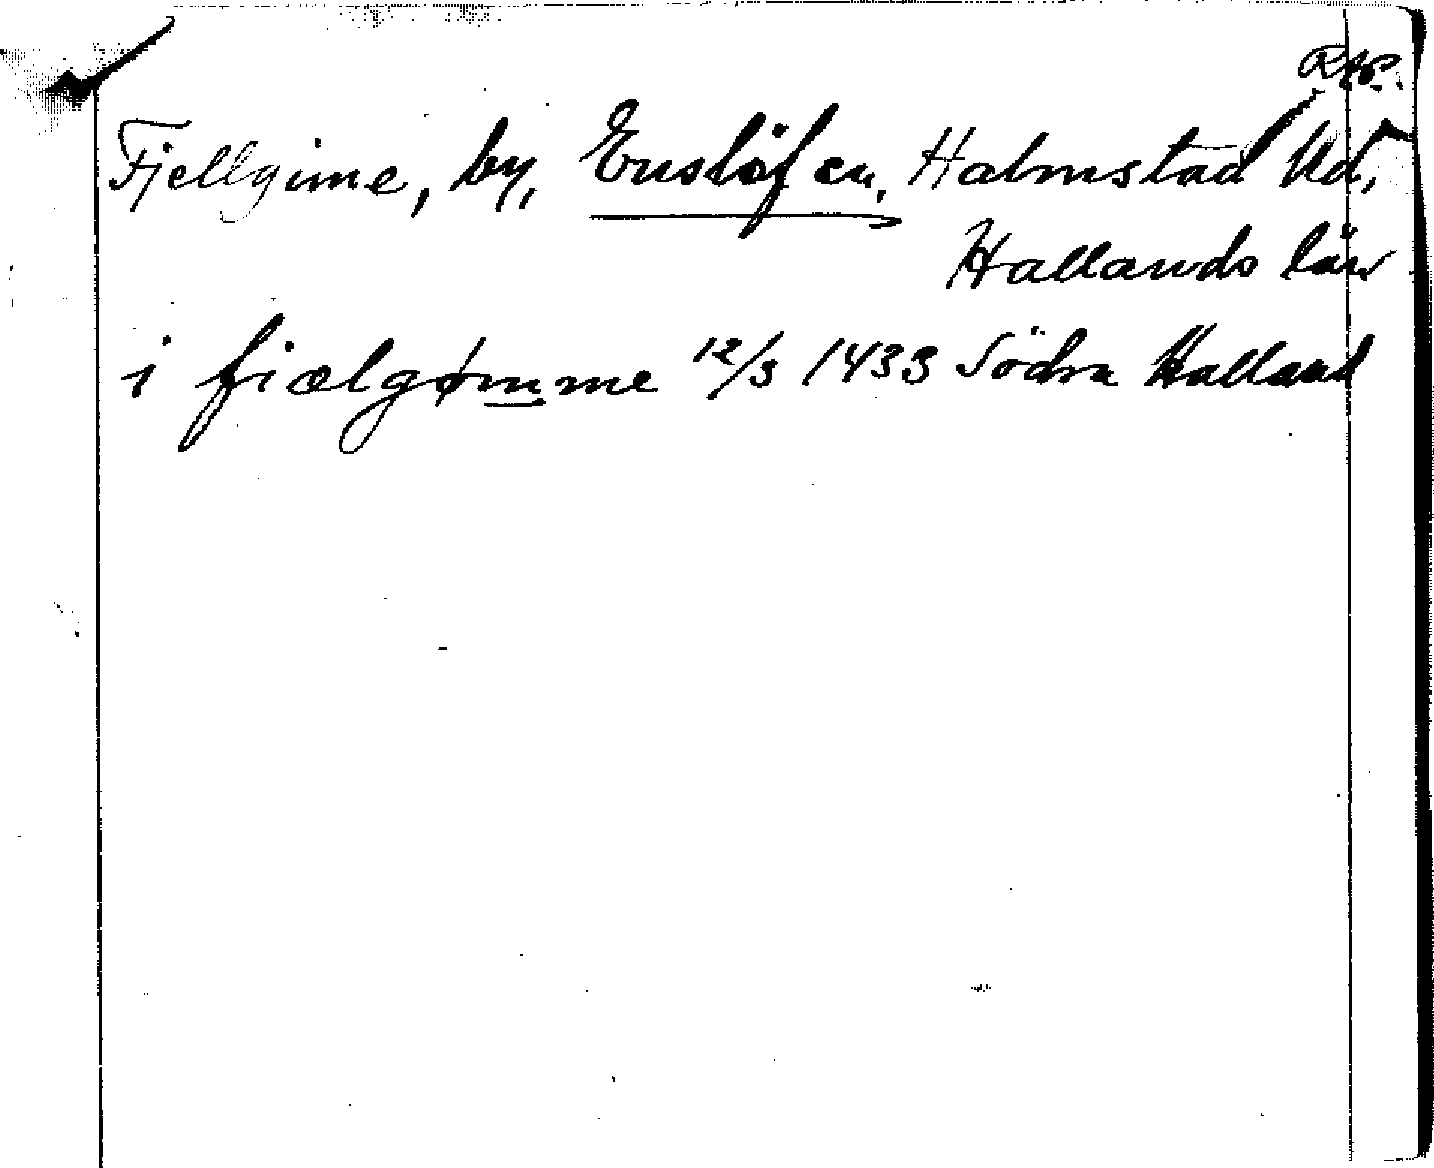 Fjellgime, by, Enslöf sn, Halmstad Hd,
Hallands län
i fiælgømme 12/3 1433 Södra Halland